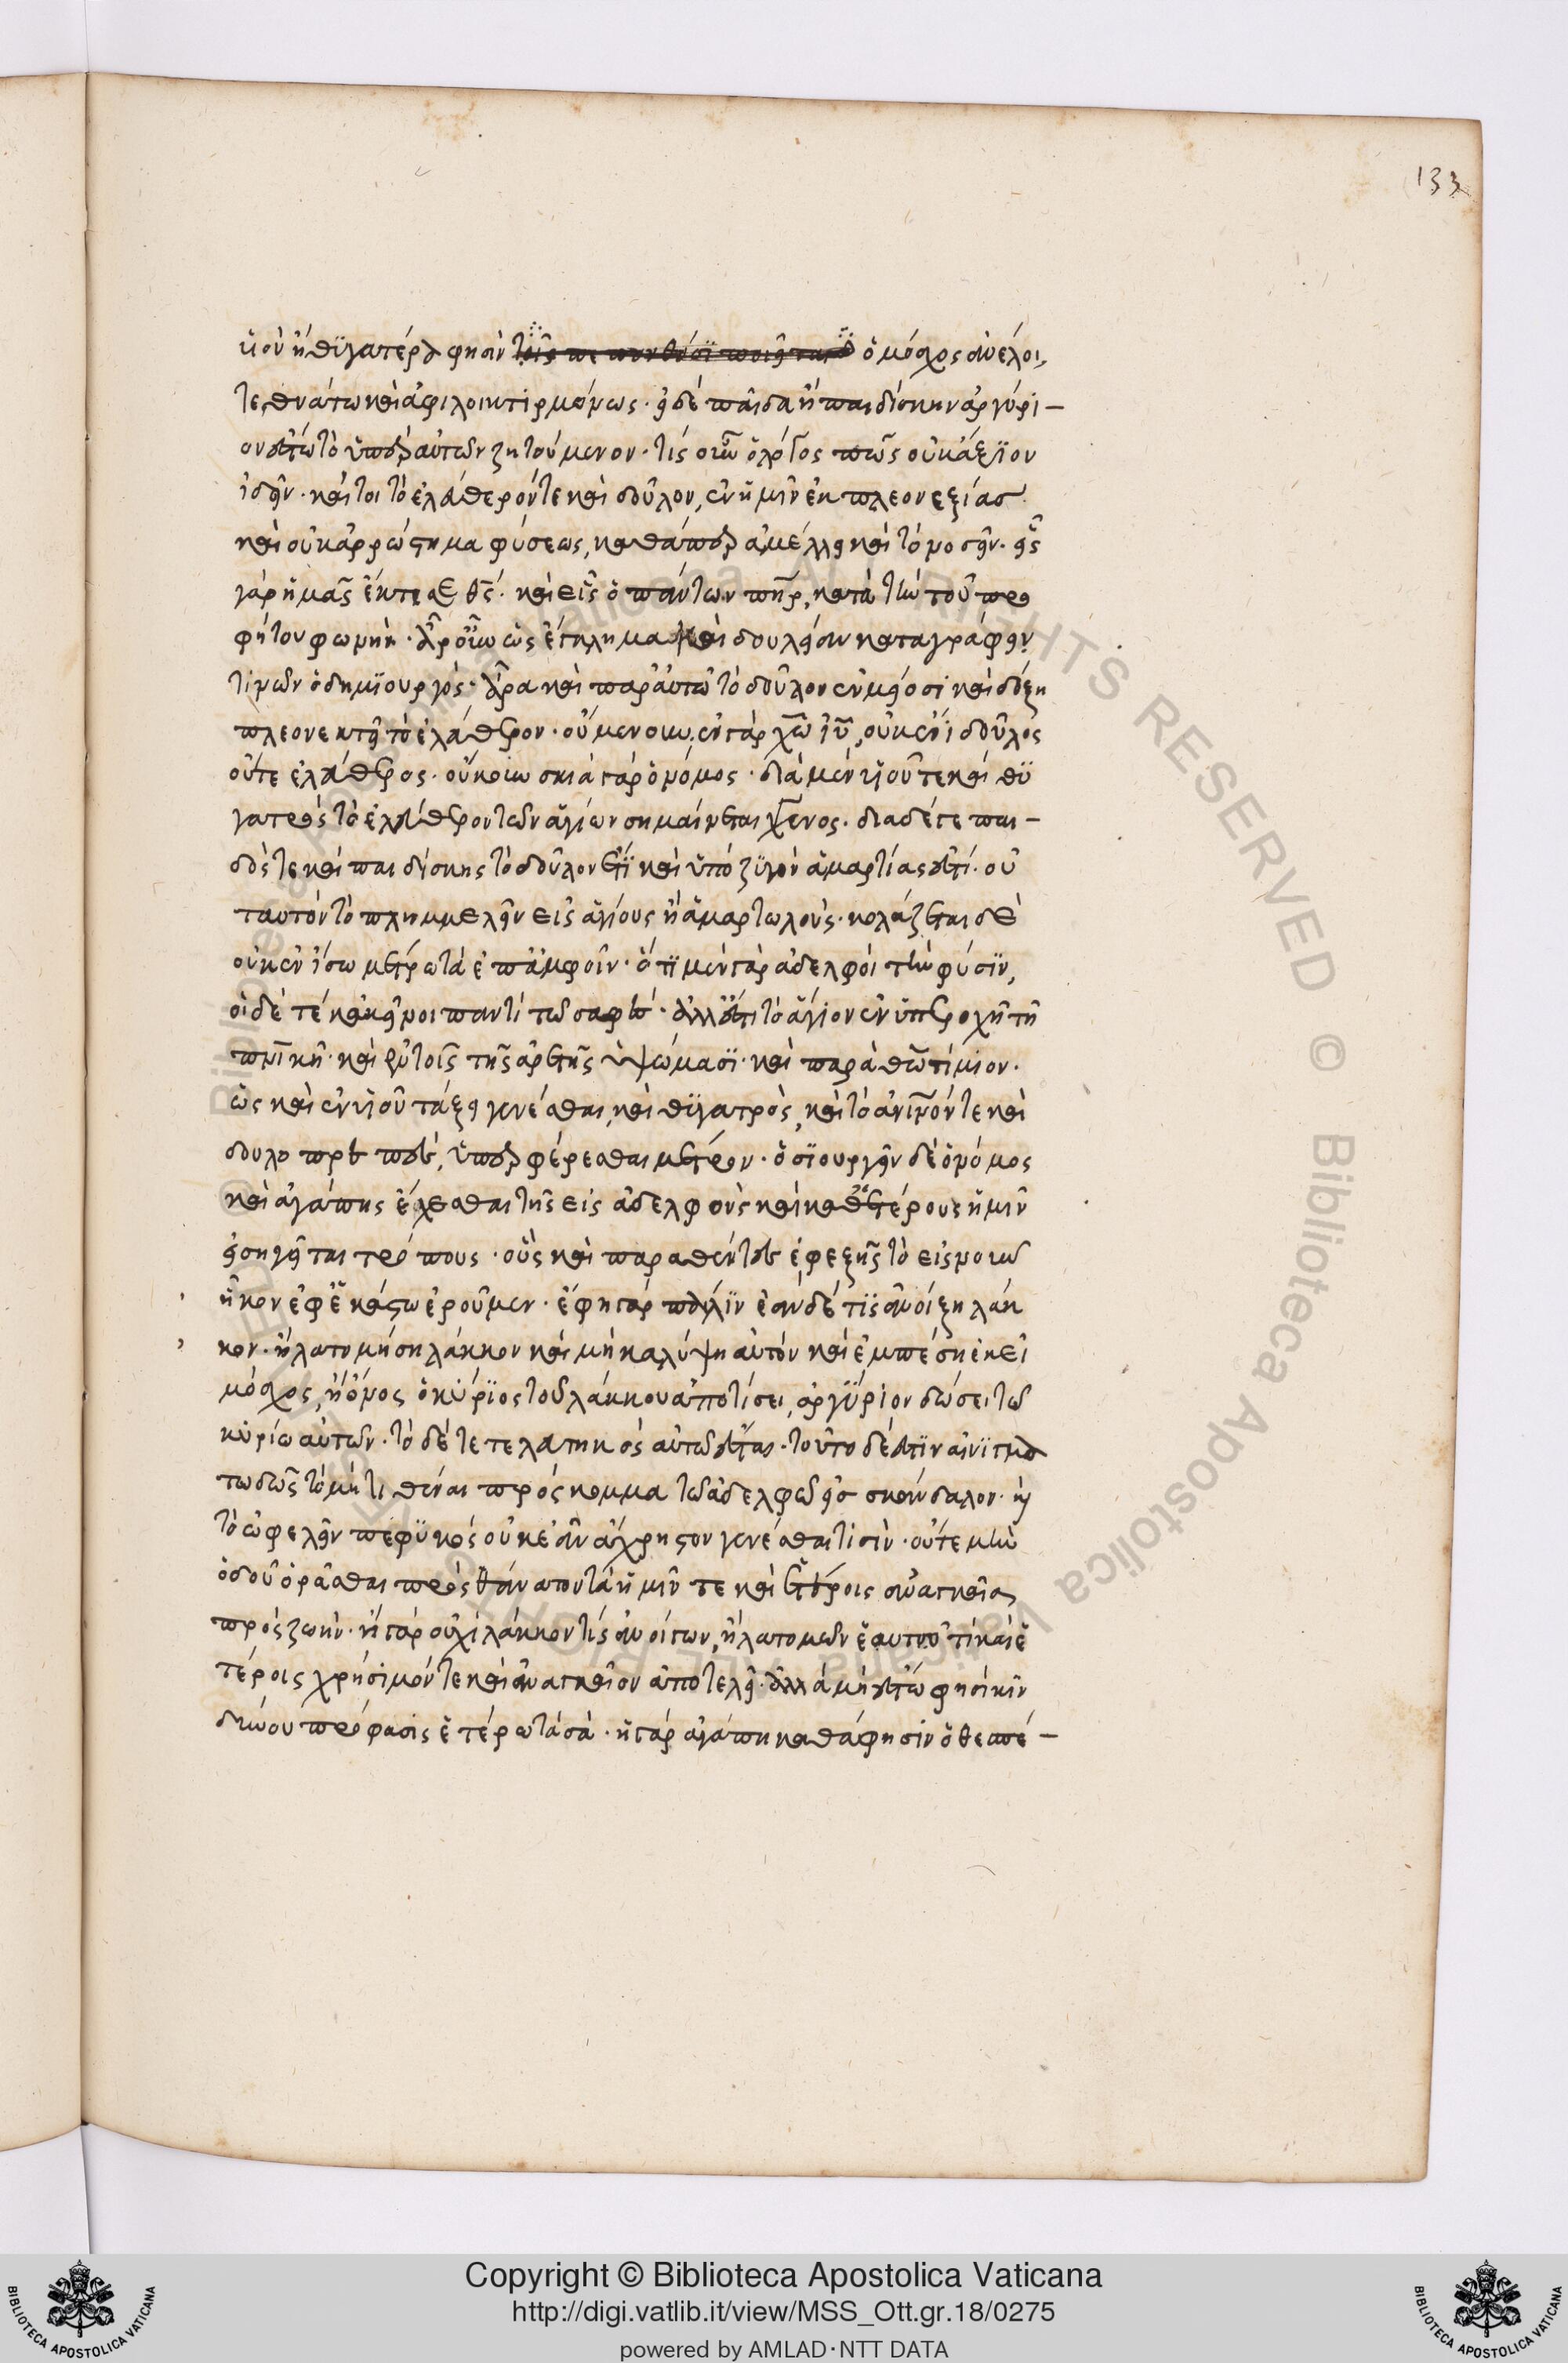 133
υἱὸν ἢ θυγατέρα φησὶν ὁ μόσχος ἀνέλοι,
τεθνάτω καὶ ἀφιλοικτιρμόνως· εἰ δὲ παῖδα ἢ παιδίσκην ἀργύρι–
ον ἔστω τὸ ὑπὲρ αὐτῶν ζητούμενον· τίς οὖν ὁ λόγος πῶς οὐκ ἄξιον
ἰδεῖν· καίτοι τὸ ἐλεύθερόν τε καὶ δοῦλον, ἐν ἡμῖν ἐκ πλεονεξίας
καὶ οὐκ ἀρρώστημα φύσεως, καθάπερ ἀμέλει καὶ τὸ νοσεῖν· εἷς
γὰρ ἡμᾶς ἔκτισε θς· καὶ εἷς ὁ πάντων πηρ, κατὰ τὴν τοῦ προ
φήτου φωνήν· ἆρ' οὖν ὡς ἔγκλημα καὶ δουλείαν καταγράφει
τινῶν ὁ δημιουργός· ἆρα καὶ παρ' αὐτῷ τὸ δοῦλον ἐν μείοσι καὶ δόξῃ
πλεονεκτεῖ τὸ ἐλεύθερον· οὐμενοῦν· ἐν γὰρ χω ιυ, οὐκ ἔνι δοῦλος
οὔτε ἐλεύθερος· οὐκοῦν σκιὰ γὰρ ὁ νόμος· διὰ μὲν υἱοῦ τε καὶ θυ
γατρὸς τὸ ἐλεύθερον τῶν ἁγίων σημαίνεται γένος· διὰ δέ γε παι–
δός τε καὶ παιδίσκης τὸ δοῦλον ἔτι καὶ ὑπὸ ζυγὸν ἁμαρτίας ἐστί· οὐ
ταυτὸν τὸ πλημμελεῖν εἰς ἁγίους ἢ ἁμαρτωλούς· κολάζεται δὲ
οὐκ ἐν ἴσῳ μέτρῳ τὰ ἐπ' ἀμφοῖν· ὅτι μὲν γὰρ ἀδελφοὶ τὴν φύσιν,
οἵδε τε κἀκεῖνοι παντί τῳ σαφές· ἀλλ' ἔστι τὸ ἅγιον ἐν ὑπεροχῇ τῇ
πνικῇ· καὶ ἐν τοῖς τῆς ἀρετῆς ὑψώμασι· καὶ παρὰ θω τίμιον·
ὡς καὶ ἐν υἱοῦ τάξει γενέσθαι, καὶ θυγατρός, καὶ τὸ ἀνιερόν τε καὶ
δουλοπρεπές, ὑπερφέρεσθαι μέτρον· ὁσιουργεῖν δὲ ὁ νόμος
καὶ ἀγάπης ἔχεσθαι τῆς εἰς ἀδελφοὺς καὶ καθ' ἑτέρους ἡμῖν
εἰσηγεῖται τρόπους· οὓς καὶ παραθέντες ἐφεξῆς τὸ εἰς νοῦν
ἧκον ἐφ' ἑκάστῳ ἐροῦμεν· ἔφη γὰρ πάλιν ἐὰν δέ τις ἀνοίξῃ λάκ
κον· ἢ λατομήσῃ λάκκον καὶ μὴ καλύψῃ αὐτὸν καὶ ἐμπέσῃ ἐκεῖ
μόσχος, ἢ ὄνος ὁ κύριος τοῦ λάκκου ἀποτίσει, ἀργύριον δώσει τῷ
κυρίῳ αὐτῶν· τὸ δὲ τετελευτηκὸς αὐτῷ ἔσται· τοῦτο δέ ἐστιν αἰνιγμα
τωδῶς τὸ μὴ τιθέναι πρόσκομμα τῷ ἀδελφῷ εἰς σκάνδαλον· καὶ
τὸ ὠφελεῖν πεφυκὸς οὐκ ἐᾶν ἄχρηστον γενέσθαι τισίν· οὔτε μὴν
ὁδοῦ ὁρᾶσθαι πρὸς θάνατον τὰ ἡμῖν τε καὶ ἑτέροις ἀναγκαῖα
πρὸς ζωήν· ἢ γὰρ οὐχὶ λάκκον τίς ἀνοίγων, ἢ λατομῶν ἑαυτῷ τι καὶ ἑ
τέροις χρήσιμόν τε καὶ ἀναγκαῖον ἀποτελεῖ· ἀλλὰ μὴ ἔστω φησὶ κιν
δύνου πρόφασις ἑτέρῳ τὰ σά· ἡ γὰρ ἀγάπη καθά φησιν ὁ θεσπέ–
Copyright © Biblioteca Apostolica Vaticana
http://digi.vatlib.it/view/MSS_Ott.gr.18/0275
powered by AMLAD·NTT DATA